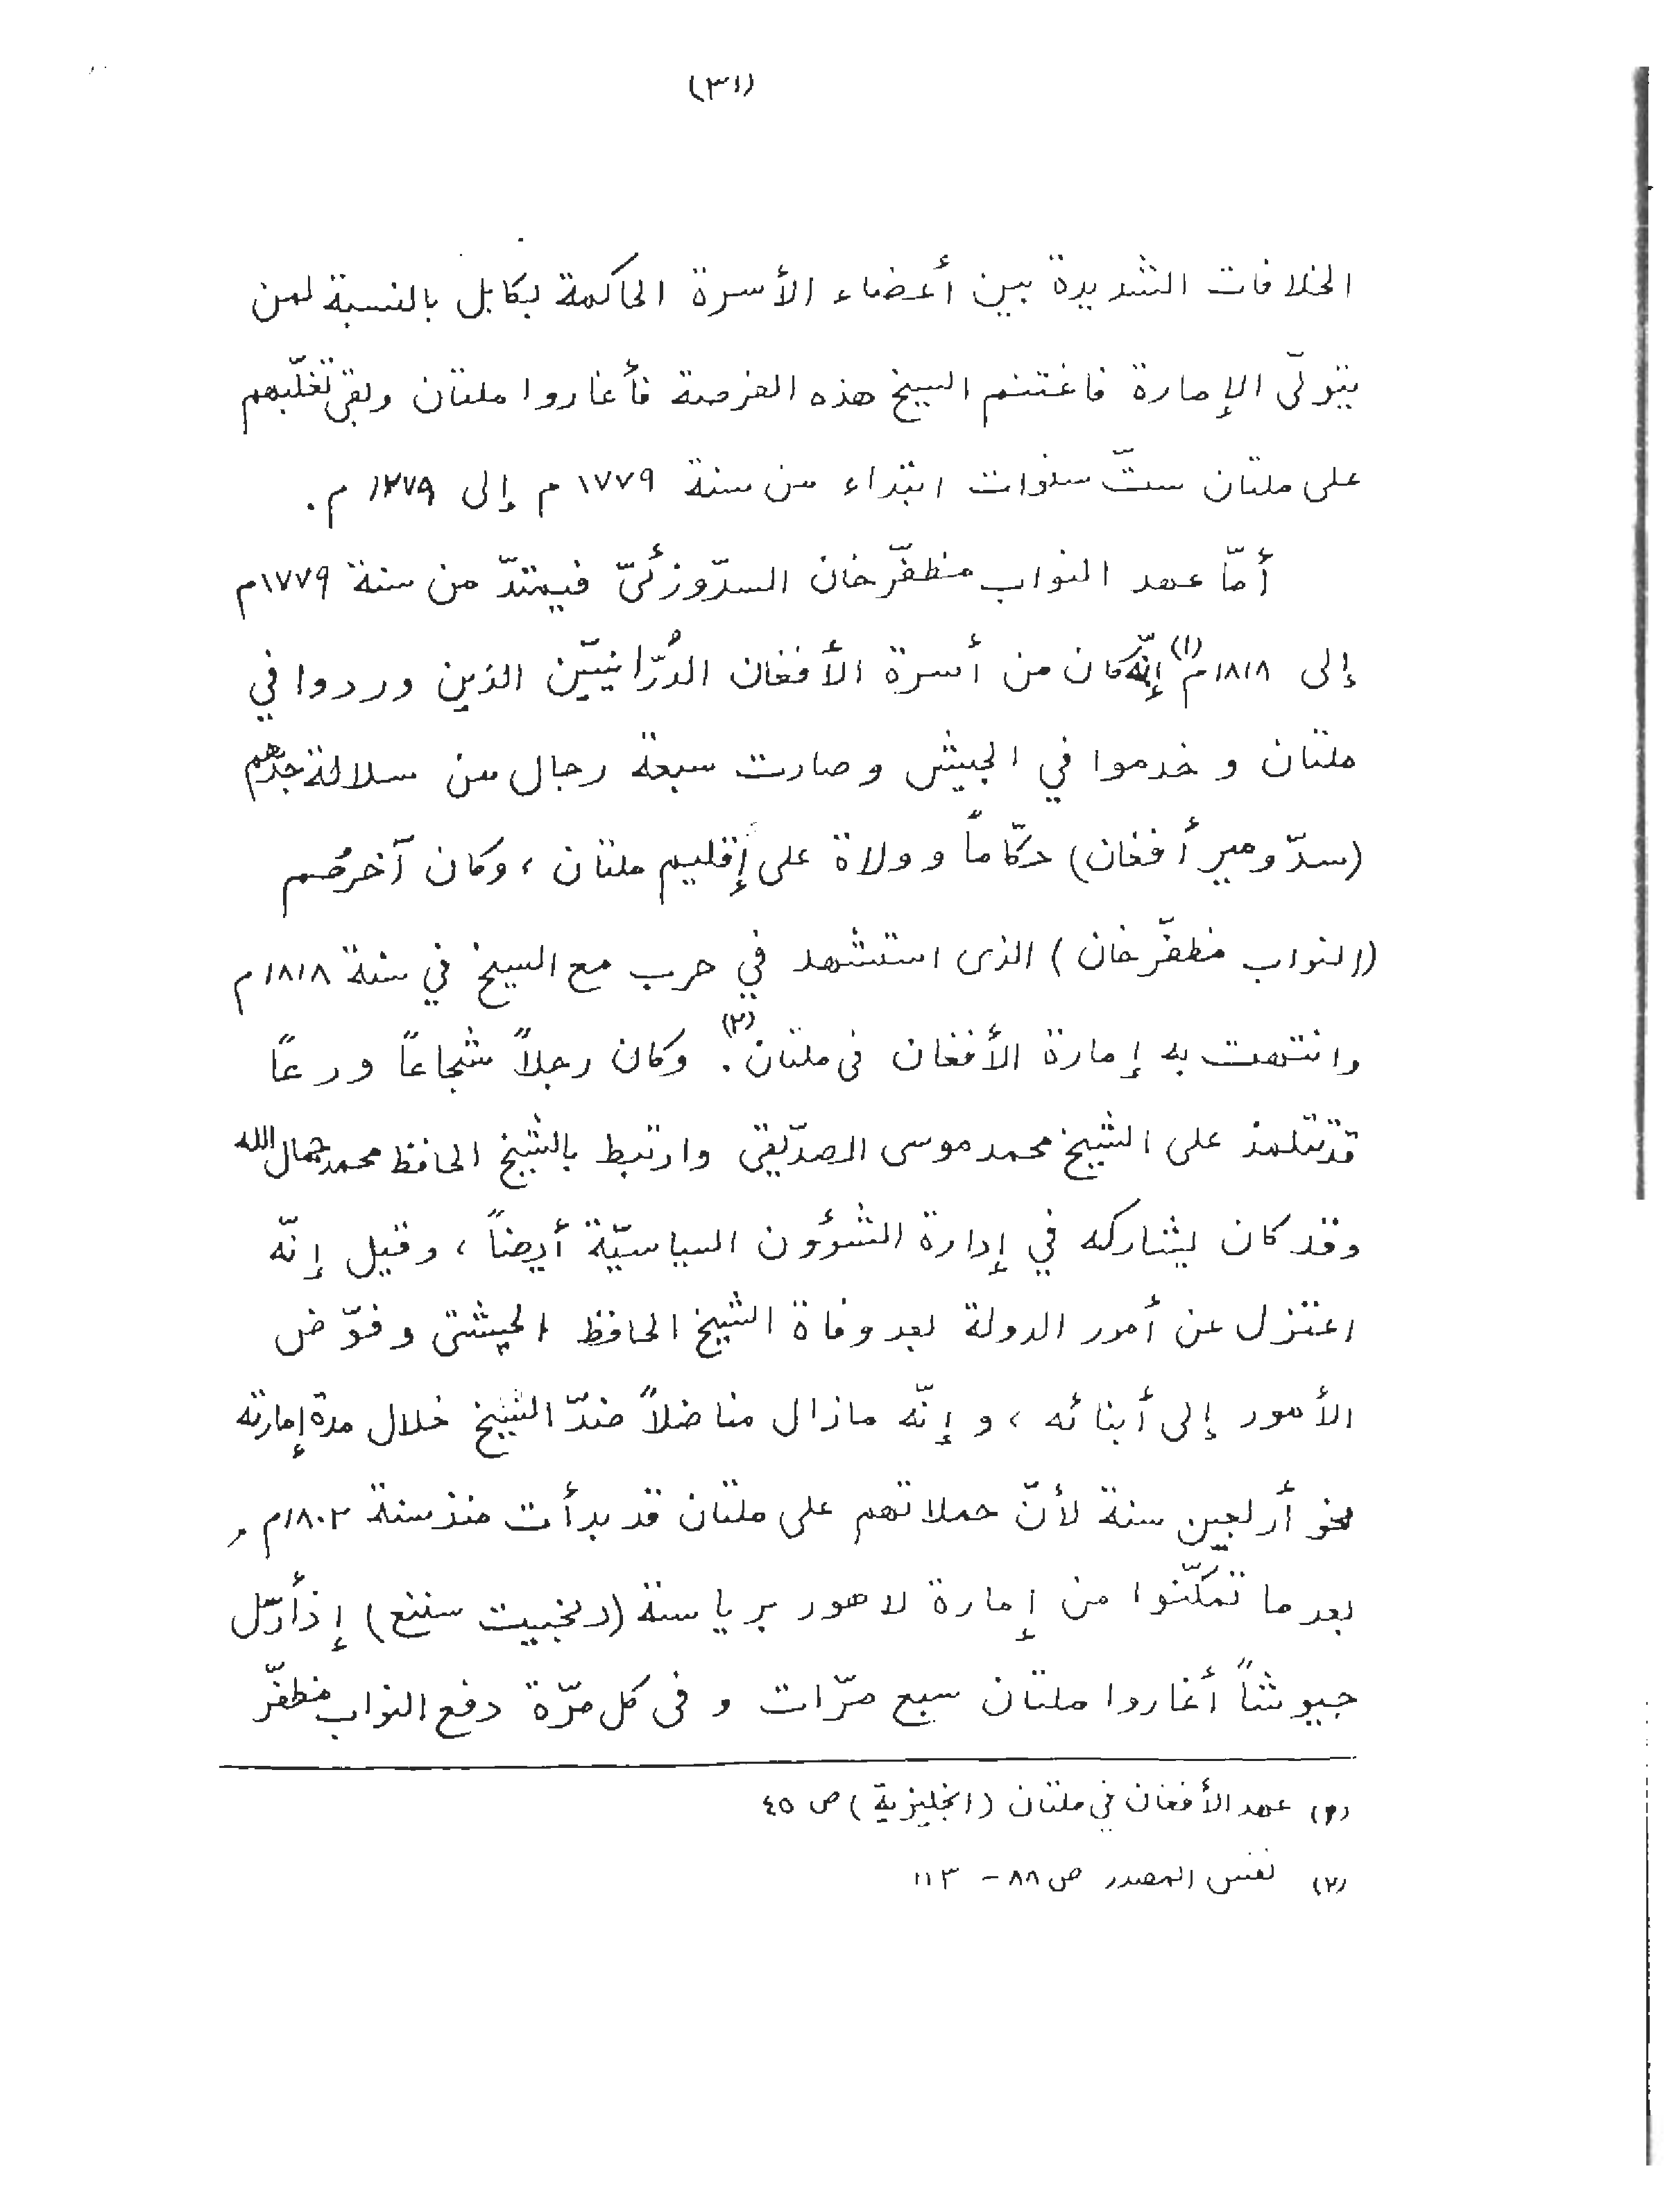 (٣١)
الخلافات الشديدة بين أعضاء الأسرة الحاكمة بكابل بالنسبة لمن
يتولّى الإمارة فاغتنم السيخ هذه الفرصة فأغاروا ملتان وبقى تغلّبهم
على ملتان ستّ سنوات ابتداء من سنة ١٧٧٩ م إلى ١٢٧٩ م.
أمّا عهد النواب مظفّر خان السدّوزئىّ فيمتدّ من سنة ١٧٧٩م
إلى ١٨١٨م(١) إنّه كان من أسرة الأفغان الدُرّانيّين الذين وردوا في
ملتان و خدموا في الجيش وصارت سبعة رجال من سلالة جدّهم
(سدّ ومير أفغان) حكّاماً وولاة على إقليم ملتان، وكان آخرهُم
(النواب مظفّر خان) الذى استشهد في حرب مع السيخ في سنة ١٨١٨م
وانتهت به إمارة الأفغان فى ملتان(٢). وكان رجلاً شجاعاً ورعاً
قد تتلمذ على الشيخ محمد موسى الصدّيقى وارتبط بالشيخ الحافظ محمد جمال الله
وقد كان يشاركه في إدارة الشؤون السياسيّة أيضاً، وقيل إنّه
اعتزل عن أمور الدولة بعد وفاة الشيخ الحافظ الچشتى وفوّض
الأمور إلى أبنائه، و إنّه مازال مناضلاً ضدّ الشيخ خلال مدة إمارته
نحو أربعين سنة لأنّ حملاتهم على ملتان قد بدأت منذ سنة ١٨٠٢م،
بعد ما تمكّنوا من إمارة لاهور برياسة (رنجيت سنغ) إذ أرسل
جيوشاً أغاروا ملتان سبع مرّات و فى كل مرّة دفع النواب مظفّر
(١) عهد الأفغان في ملتان (انجليزية) ص ٤٥
(٢) نفس المصدر ص ٨٨ - ١١٣